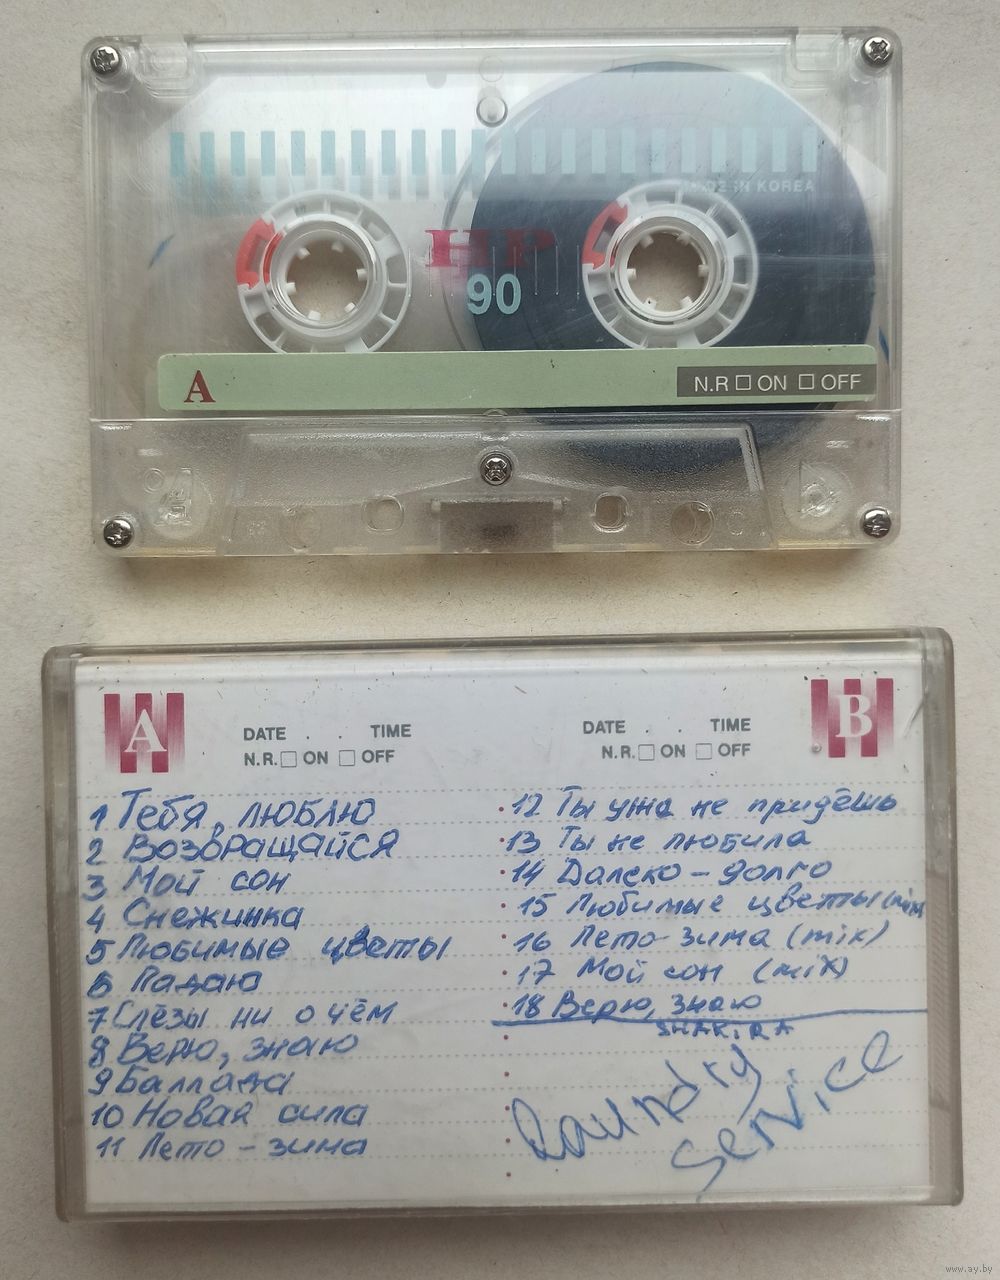 MADE IN KOREA
HP
90
A
N.R □ ON □ OFF
A
DATE . . TIME
N.R. □ ON □ OFF
1 Тебя люблю
2 Возвращайся
3 Мой сон
4 Снежинка
5 Любимые цветы
6 Падаю
7 Слёзы ни о чём
8 Верю, знаю
9 Баллада
10 Новая сила
11 Лето - зима
B
DATE . . TIME
N.R. □ ON □ OFF
12 Ты уже не придёшь
13 Ты не любила
14 Далеко - долго
15 Любимые цветы (mix
16 Лето-зима (mix)
17 Мой сон (mix)
18 Верю, знаю
SHAKIRA
Laundry
Service
www.ay.by